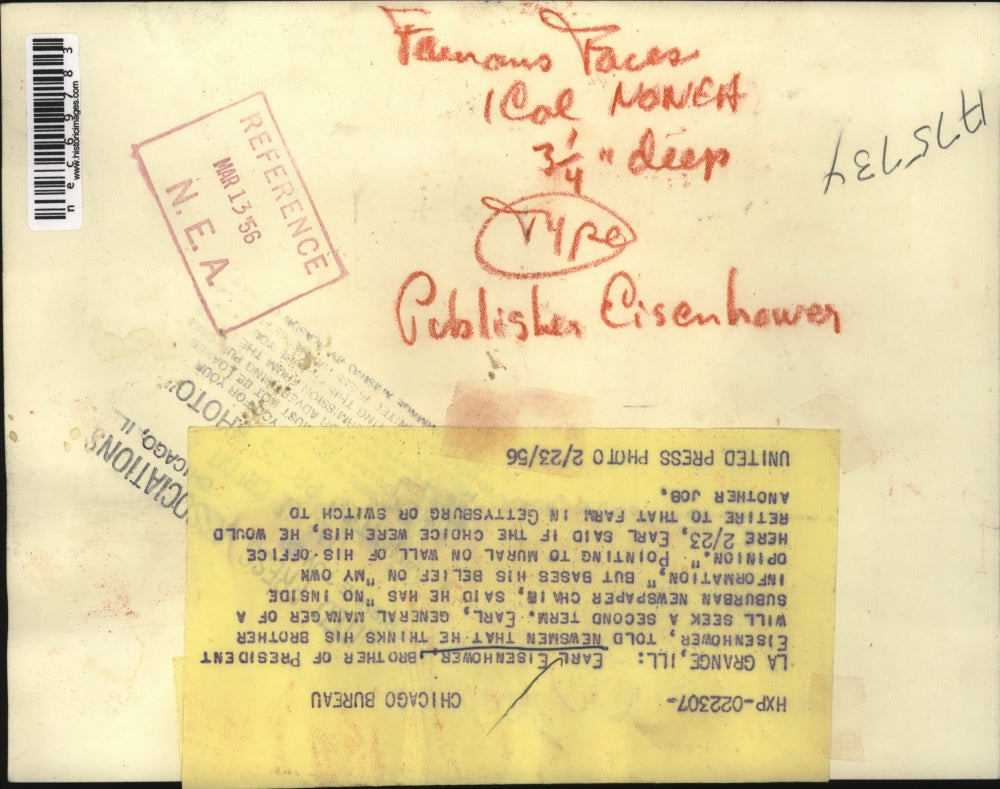 Famous Faces
1 Col NONEA
3 1/4 " deep
Type
Publisher Eisenhower
A75737
REFERENCE
MAR 13 '56
N. E. A.
nec69783
www.historicimages.com
OCIATIONS
CHICAGO, ILL.
PHOTO"
HXP-022307- CHICAGO BUREAU
LA GRANGE, ILL: EARL EISENHOWER, BROTHER OF PRESIDENT
EISENHOWER, TOLD NEWSMEN THAT HE THINKS HIS BROTHER
WILL SEEK A SECOND TERM. EARL, GENERAL MANAGER OF A
SUBURBAN NEWSPAPER CHAIN, SAID HE HAS "NO INSIDE
INFORMATION," BUT BASES HIS BELIEF ON "MY OWN
OPINION." POINTING TO MURAL ON WALL OF HIS OFFICE
HERE 2/23, EARL SAID IF THE CHOICE WERE HIS, HE WOULD
RETIRE TO THAT FARM IN GETTYSBURG OR SWITCH TO
ANOTHER JOB.
UNITED PRESS PHOTO 2/23/56